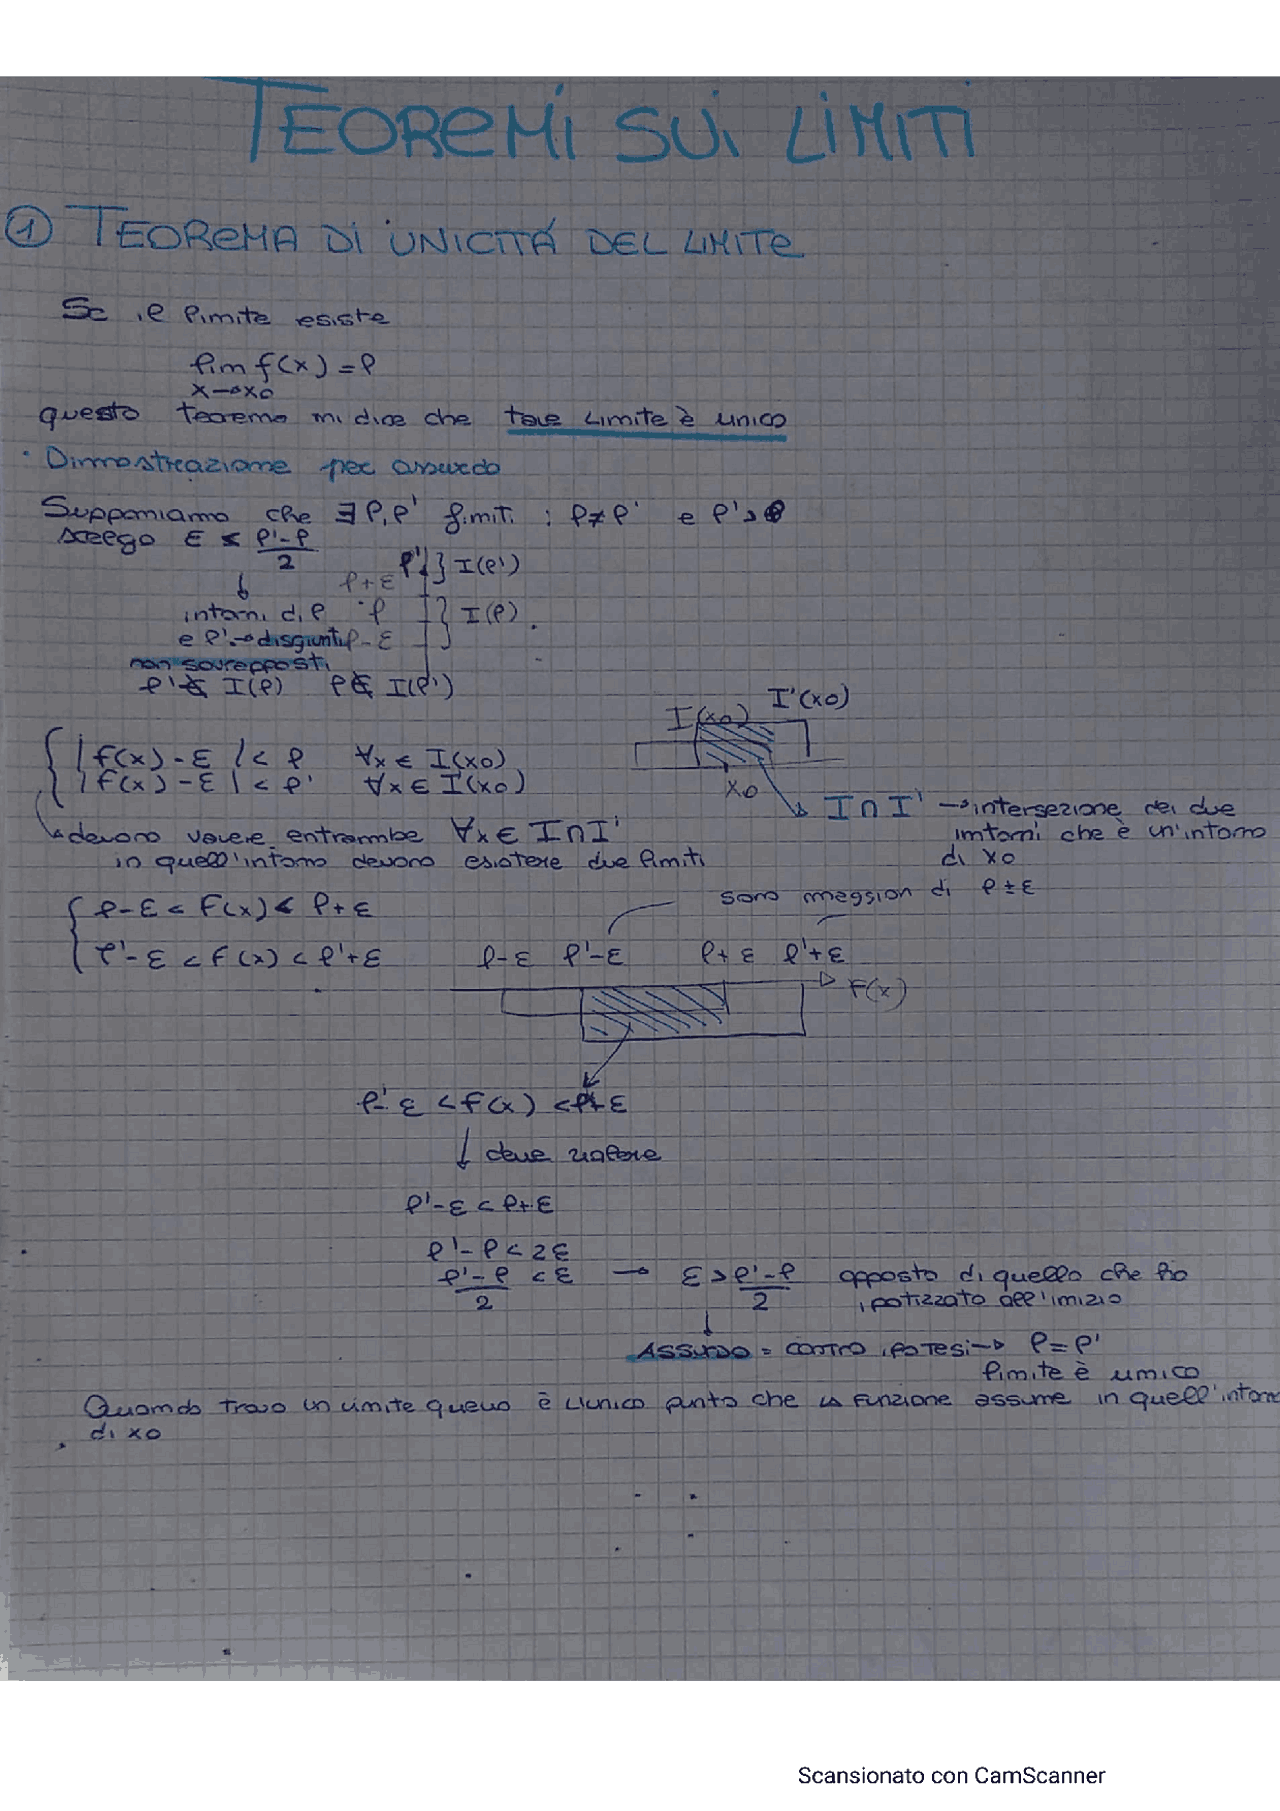 TEOREMI SUI LIMITI
① TEOREMA DI UNICITÁ DEL LIMITE
Se il limite esiste
lim f(x) = l
x→x0
questo teorema mi dice che tale limite è unico
· Dimostrazione per assurdo
Supponiamo che ∃ l, l' finiti : l≠l' e l'>l
scelgo ε ≤ l'-l
2
l' } I(l')
l+ε
intorni di l l } I(l)
e l' → disgiunti l-ε
non sovrapposti
l' ∉ I(l) l ∉ I(l')
I(x0) I'(x0)
{ |f(x) - ε| < l ∀x ∈ I(x0)
|f(x) - ε| < l' ∀x ∈ I'(x0)
x0
I ∩ I' → intersezione dei due
intorni che è un'intorno
di x0
↳ devono valere entrambe ∀x ∈ I∩I'
in quell'intorno devono esistere due limiti
sono maggiori di l±ε
{ l-ε < f(x) < l+ε
l'-ε < f(x) < l'+ε
l-ε l'-ε l+ε l'+ε
f(x)
l'-ε < f(x) < l+ε
↓ deve valere
l'-ε < l+ε
l'-l < 2ε
l'-l < ε → ε > l'-l opposto di quello che ho
2 2 ipotizzato all'inizio
↓
ASSURDO = contro ipotesi → l=l'
limite è unico
Quando trovo un limite quello è l'unico punto che la funzione assume in quell'intorno
di x0
Scansionato con CamScanner